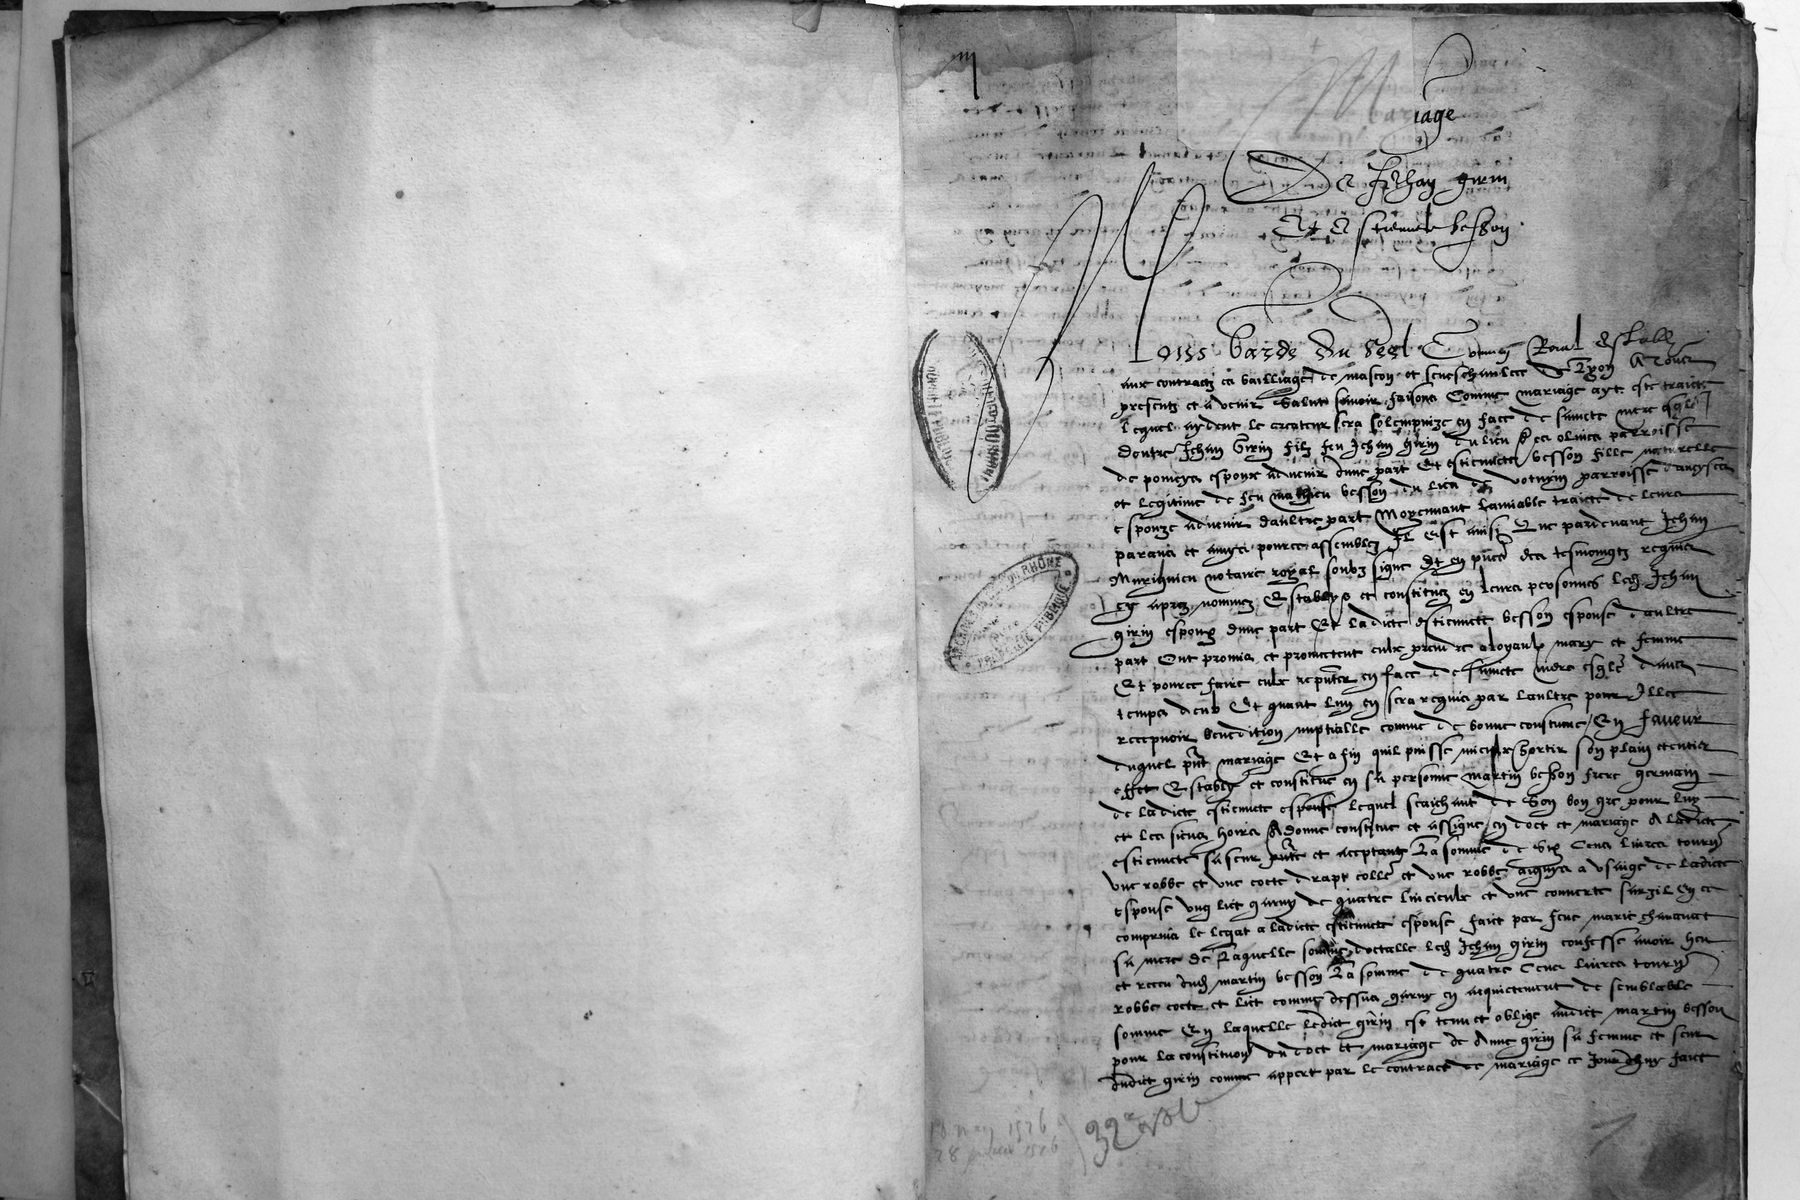 Mariage
De Jehan Girin
Et Estiennete Besson
Nous garde du seel Commun Roial estably
aux contractz es bailliage de mascon et seneschaulcee de Lyon A tous
presentz et a venir Salut scavoir faisons Comme mariage ayt este traicte
lequel aydent le createur sera solempnize en face de saincte mere esglise
dentre Jehan Girin filz feu Jehan Girin du lieu parroisse
de pomeys espoux advenir dune part Et estiennete besson fille naturelle
et legitime de feu mathieu besson du lieu de parroisse
espouze advenir daultre part Moyennant lamiable traicte de leurs
parans et amys pource assemblez Il est ainsi Que pardevant Jehan
notaire royal soubz signe Et en pnce des tesmoingtz requis
cy apres nommez Establys et constituez en leurs personnes led Jehan
girin espoux dune part Et ladicte estiennete besson espouse daultre
part Ont promis et promectent eulx prendre a loyaulx mary et femme
Et pource faire eulx en face de saincte mere esglise dans
temps deub Et quant lun en sera requis par laultre pour Illec
recepvoir benedition nuptialle comme de bonne coustume En faveur
duquel pnt mariage Et afin quil puisse mieulx sortir son plain et entier
effet Estably et constitue en sa personne martin besson frere germain
de ladicte estiennete espouse lequel saichant de son bon gre pour luy
et les siens hoirs A donne constitue et assigne en doct et mariage A ladicte
estiennete sa seur pnte et aceptant La somme de Six Cens livres tourn
une robbe et une cotte drapt colle et une robbe a usaige de ladicte
espouse ung lict garny de quatre linceulx et une couverte sarzil en ce
comprins le legat a ladicte estiennete espouse faict par feue marie
sa mere De Laquelle somme doctalle led Jehan girin confesse avoir heu
et receu dud martin besson La somme de quatre Cens livres tourn
robbe cotte et lict comme dessus garny en acquictement de semblable
somme En laquelle ledict girin est tenu et oblige audict martin besson
pour la constitution du doct et mariage de Anne girin sa femme et seur
dudict girin comme appert par le contract de mariage ce Jourdhuy faict